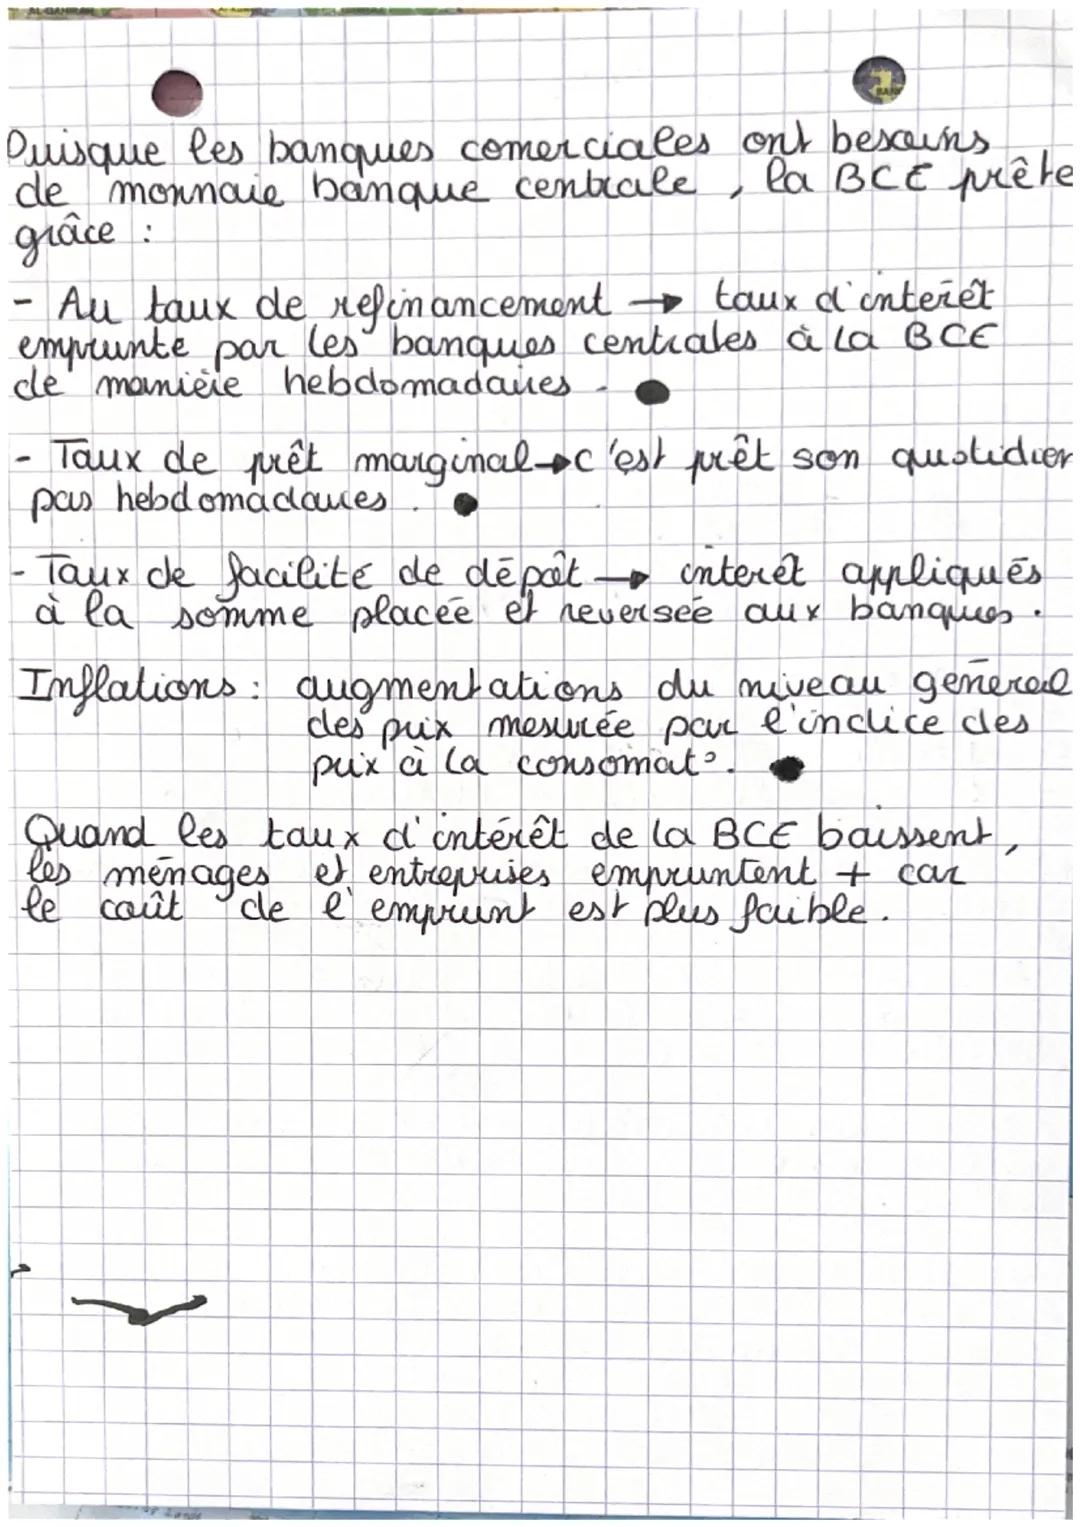 Puisque les banques comerciales ont besoins
de monnaie banque centrale, la BCE prête
grâce :
- Au taux de refinancement → taux d'interêt
emprunte par les banques centrales à la BCE
de manière hebdomadaires.
- Taux de prêt marginal → c'est prêt son quotidien
pas hebdomadaires.
- Taux de facilité de dépôt → interêt appliqués
à la somme placée et reversée aux banques.
Inflations : augmentations du niveau général
des prix mesurée par l'indice des
prix à la consomat°.
Quand les taux d'intérêt de la BCE baissent,
les ménages et entreprises empruntent + car
le coût de l'emprunt est plus faible.